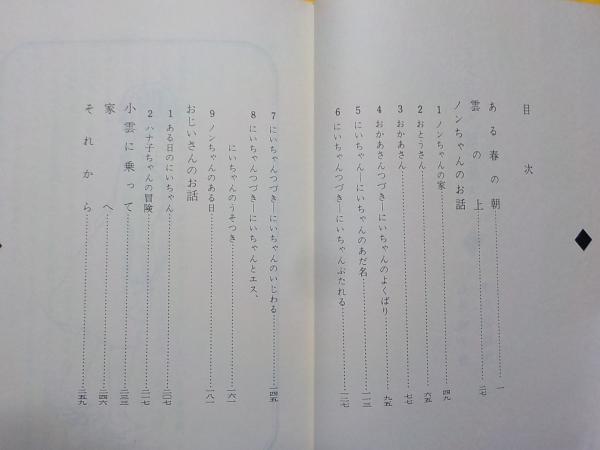 目次
ある春の朝……一
雲の上……二七
ノンちゃんのお話
1 ノンちゃんの家……四九
2 おとうさん……六五
3 おかあさん……七七
4 おかあさんつづき—にいちゃんのよくばり……九五
5 にいちゃん—にいちゃんのあだ名……一一三
6 にいちゃんつづき—にいちゃんぶたれる……一二七
7 にいちゃんつづき—にいちゃんのいじわる……一四五
8 にいちゃんつづき—にいちゃんとエス、
にいちゃんのうそつき……一六一
9 ノンちゃんのある日……一八一
おじいさんのお話
1 ある日のにいちゃん……二〇七
2 ハナ子ちゃんの冒険……二一七
小雲に乗って……二三三
家へ……二四六
それから……二五九